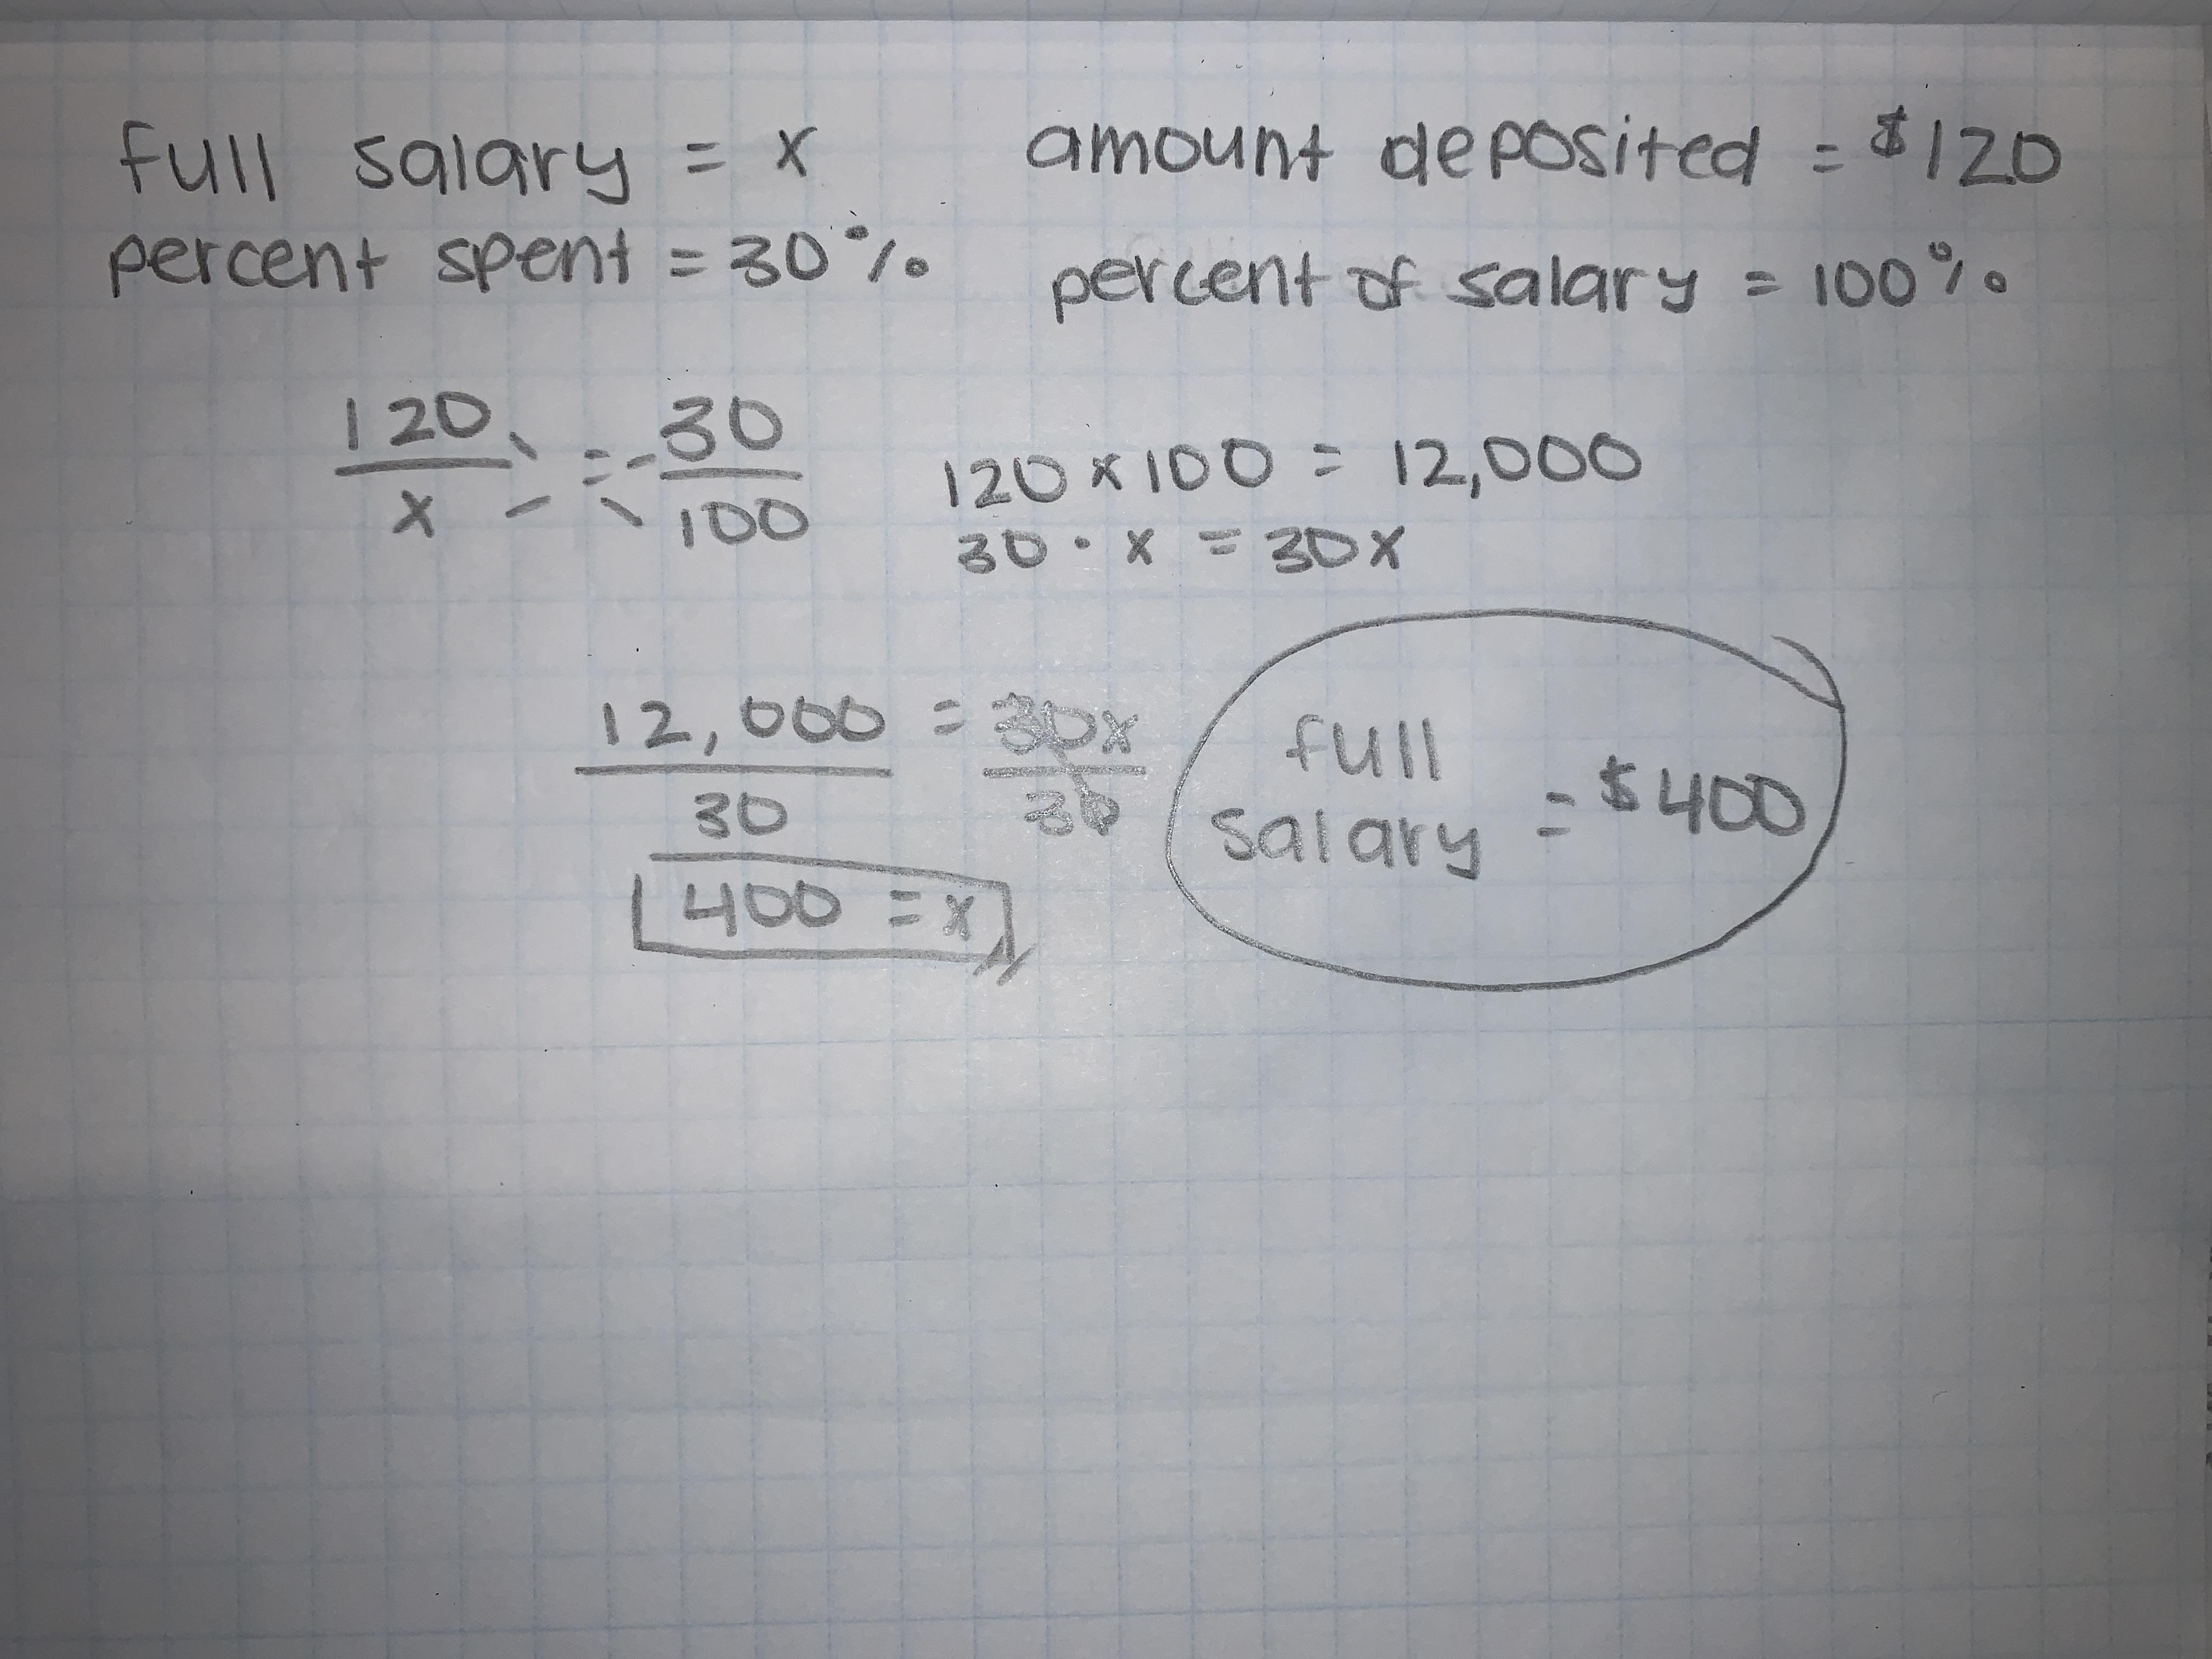 full salary = x
percent spent = 30%
amount deposited = $120
percent of salary = 100%
120/x = 30/100
120 x 100 = 12,000
30 · x = 30x
12,000/30 = 30x/30
400 = x
full
salary = $400